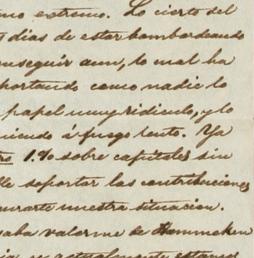 mo extremo. Lo cierto del
dias de estar bombardeando
nseguir aun, lo mal ha
portando como nadie lo
papel muy ridiculo, y lo
uiendo á fuego lento. Ya
1.% sobre capitales sin
le soportar las contribuciones
gurarte nuestra situacion.
saba valerme de Hammeken
actualmente estamos